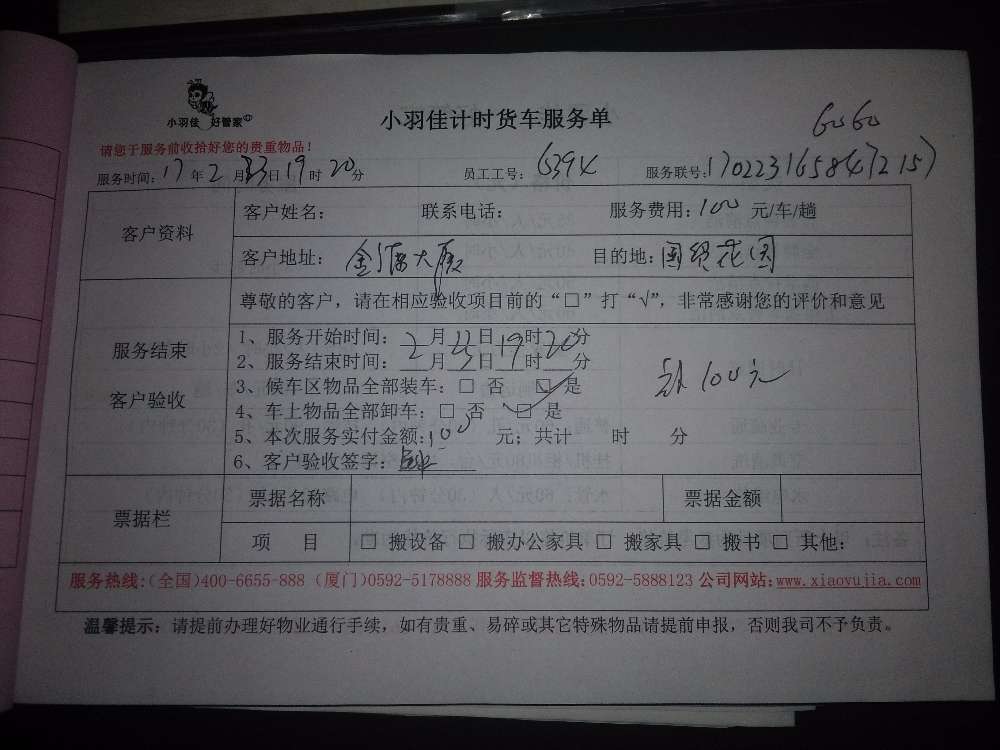 小羽佳 好管家
小羽佳计时货车服务单
6060
请您于服务前收拾好您的贵重物品！
服务时间：17年2月23日19时20分 员工工号：6394 服务联号：170223165847215
客户资料
客户姓名： 联系电话： 服务费用：100 元/车/趟
客户地址： 大厦 目的地：国贸花园
尊敬的客户，请在相应验收项目前的“□”打“√”，非常感谢您的评价和意见
服务结束
客户验收
1、服务开始时间：2月23日19时20分
2、服务结束时间：__月__日__时__分
3、候车区物品全部装车：□ 否 □ 是
4、车上物品全部卸车：□ 否 □ 是
5、本次服务实付金额：100 元；共计 时 分
6、客户验收签字：
100元
票据栏
票据名称 票据金额
项 目 □ 搬设备 □ 搬办公家具 □ 搬家具 □ 搬书 □ 其他：
服务热线：(全国)400-6655-888 (厦门)0592-5178888 服务监督热线：0592-5888123 公司网站：www.xiaoyujia.com
温馨提示：请提前办理好物业通行手续，如有贵重、易碎或其它特殊物品请提前申报，否则我司不予负责。